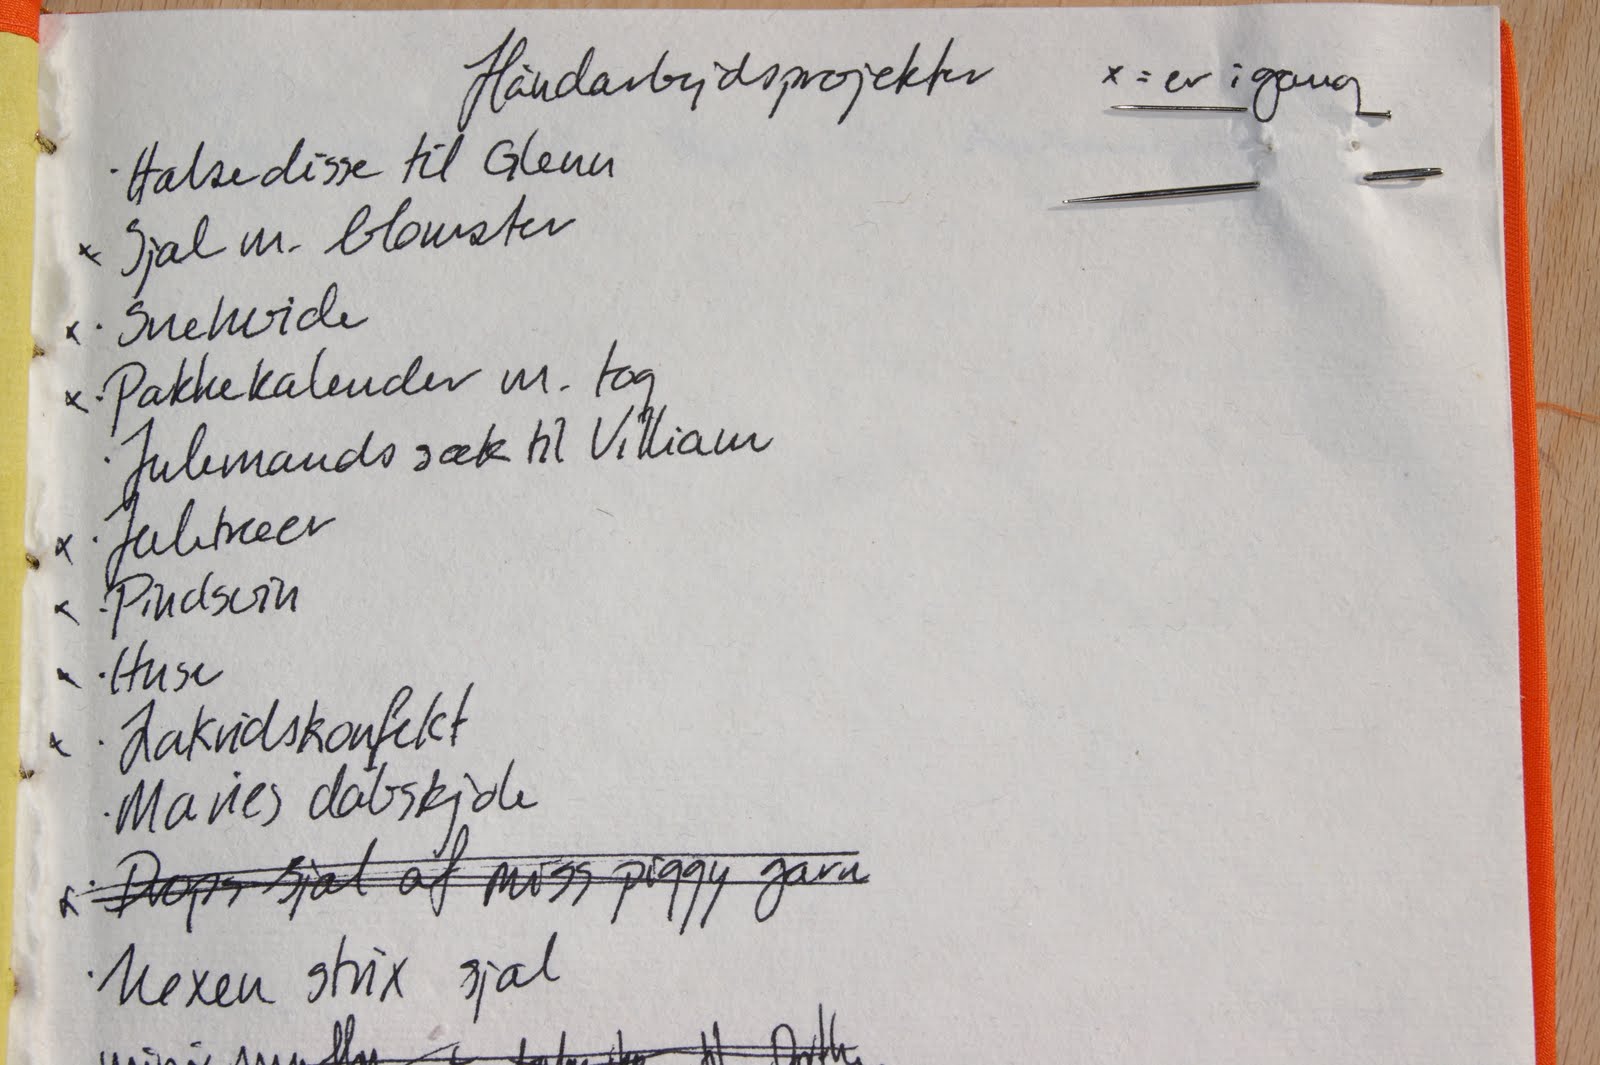 Håndarbejdsprojekter x = er i gang
· Halsedisse til Glenn
x Sjal m. blomster
x · Snehvide
x · Pakkekalender m. tog
· Julemandssæk til Villiam
x · Juletræer
x · Pindsvin
x · Huse
x · Lakridskonfekt
· Maries dåbskjole
x · Drops sjal af miss piggy garn
· Hexen strix sjal
til